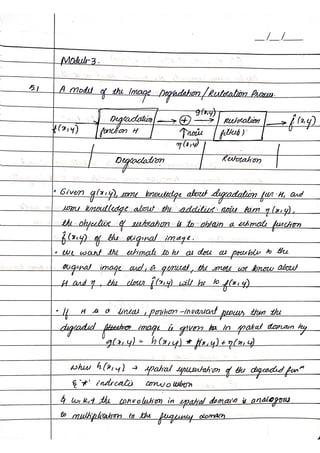 __/__/____
Module-3.
5.1 A model of the Image Degradation/Restoration Process.
f(x,y) → Degradation function H → + → g(x,y) → Restoration filter(s) → f̂(x,y)
↑ noise
η(x,y)
Degradation | Restoration
• Given g(x,y), some knowledge about degradation fun H, and
some knowledge about the additive noise term η(x,y),
the objective of restoration is to obtain a estimate function
f̂(x,y) of the original image.
• We want the estimate to be as close as possible to the
original image and, in general, the more we know about
H and η, the closer f̂(x,y) will be to f(x,y)
• If H is a linear, position-invariant process then the
degraded image is given in spatial domain by
g(x,y) = h(x,y) * f(x,y) + η(x,y)
where h(x,y) → spatial representation of the degraded funⁿ
& '*' indicates convolution
& W.K.T the convolution in spatial domain is analogous
to multiplication in the frequency domain